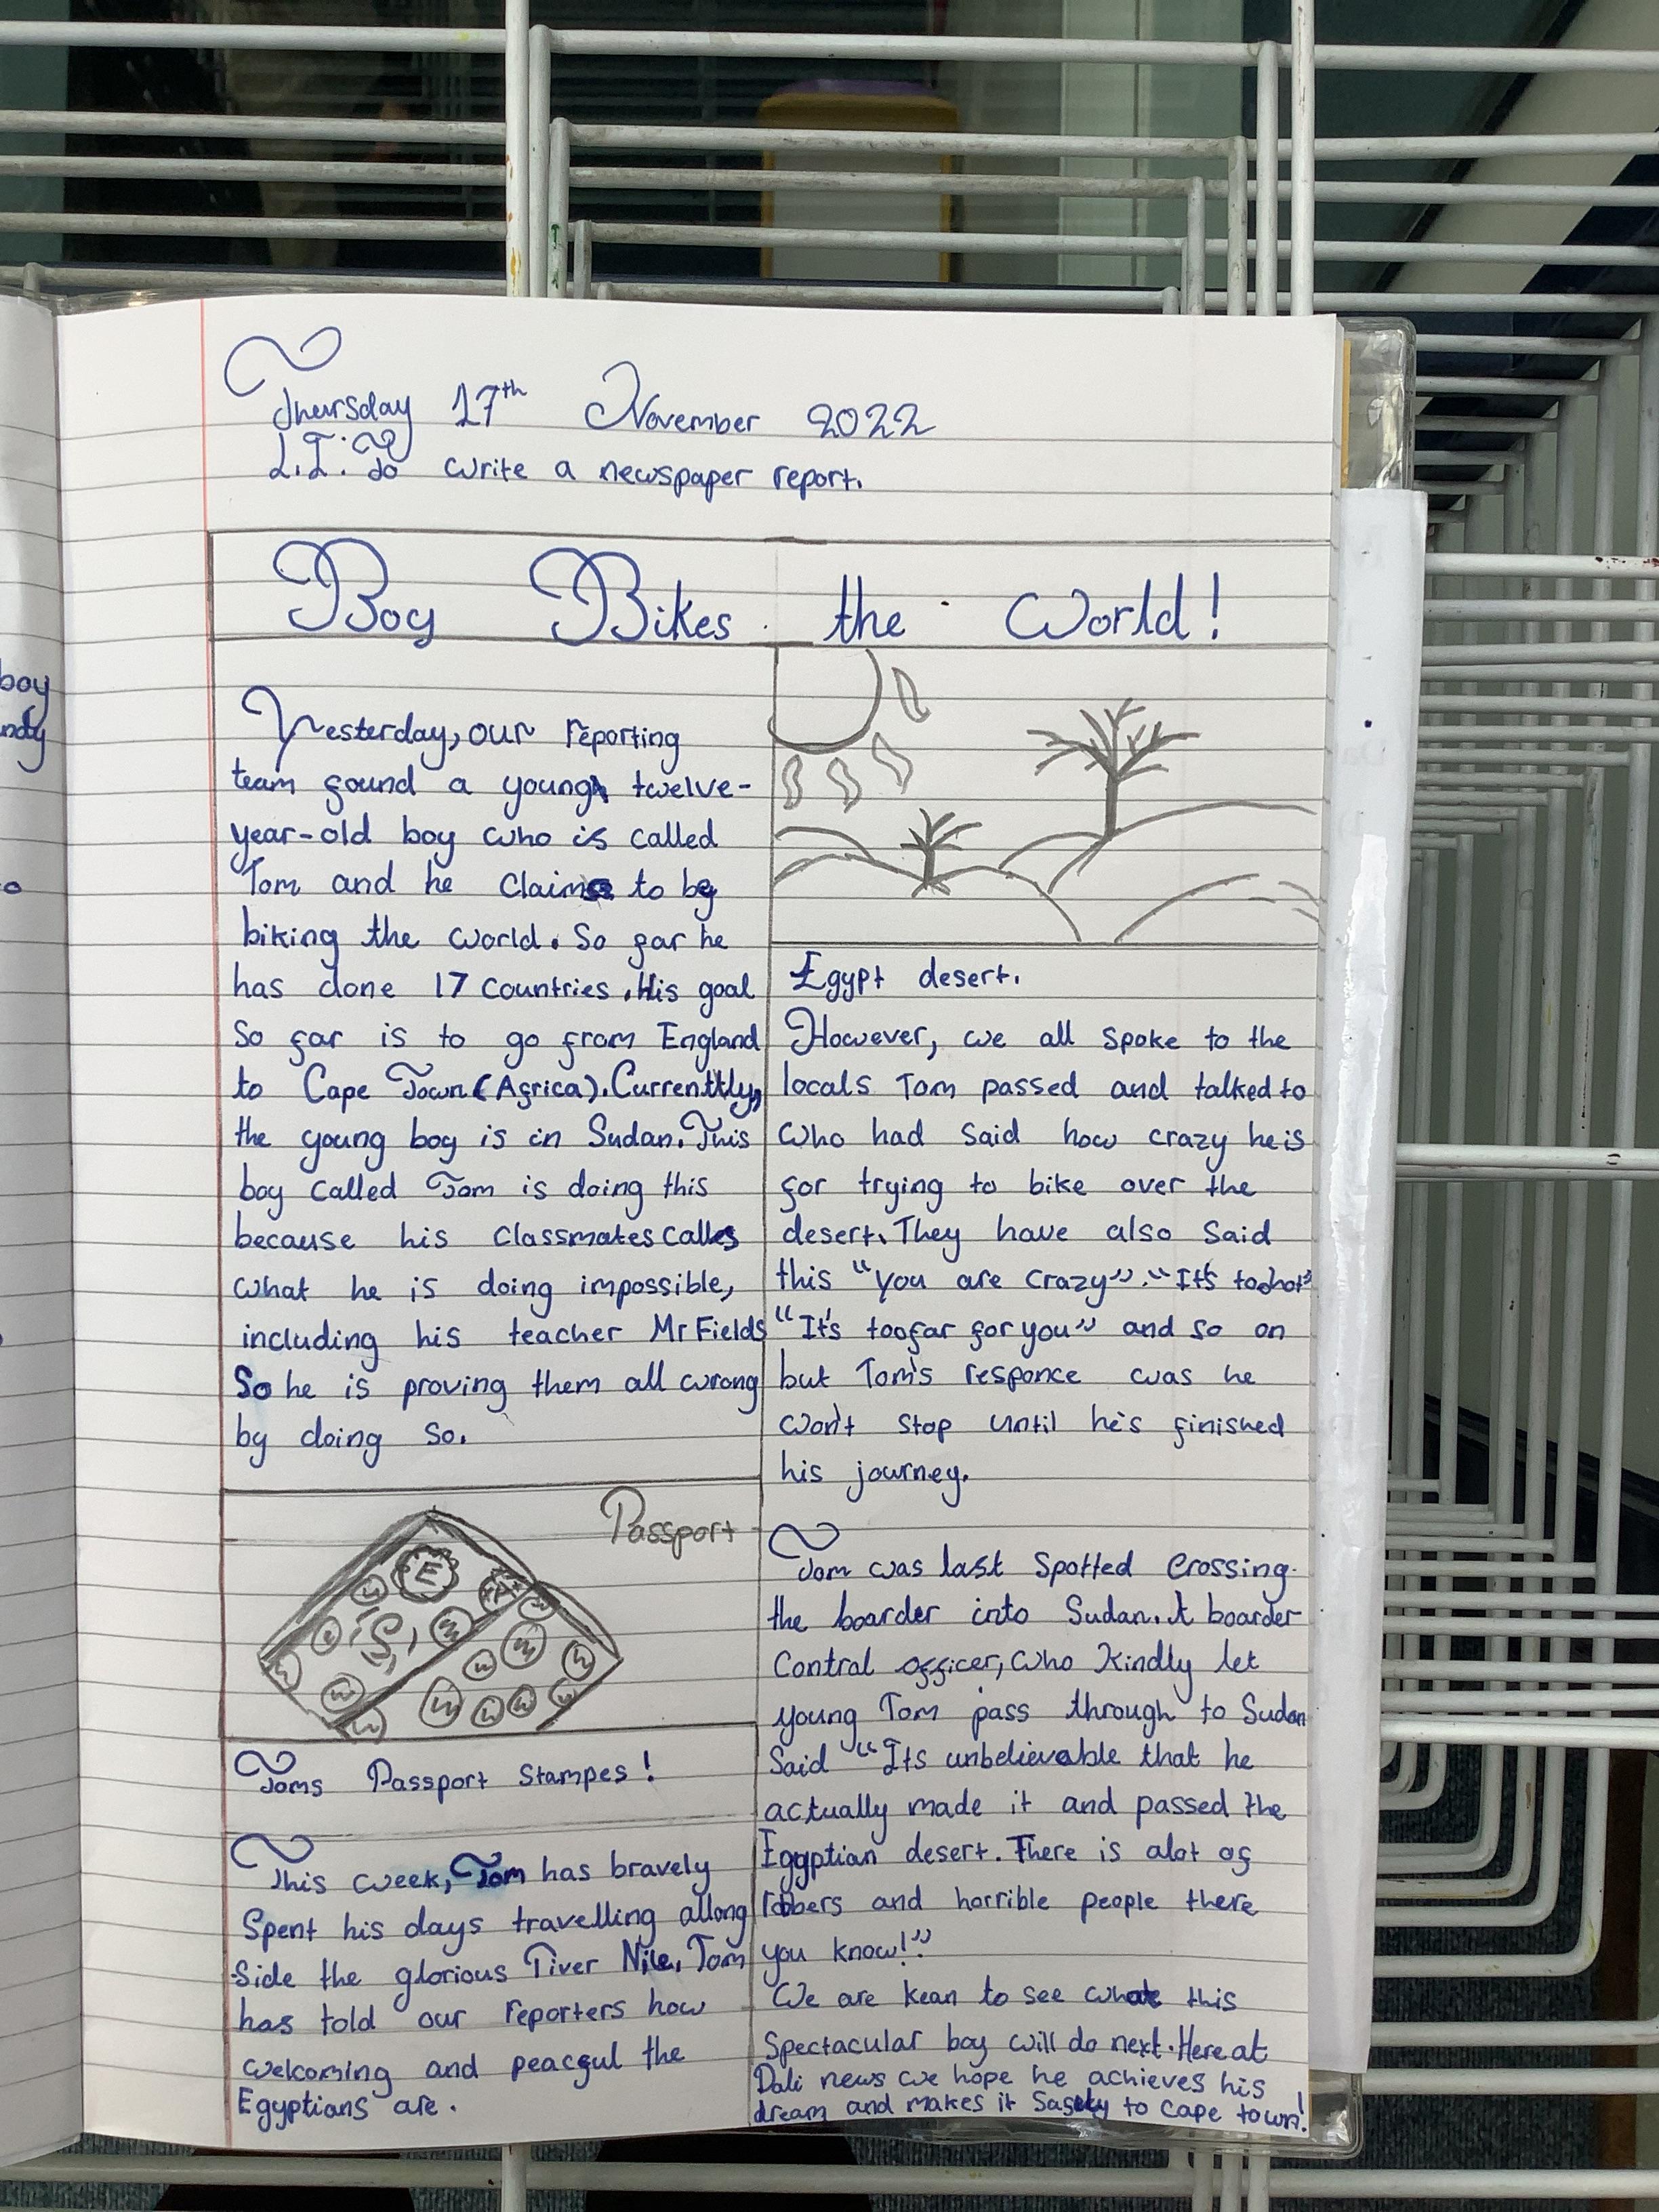 Thursday 17th November 2022
L.I: To write a newspaper report.
Boy Bikes the World!
Yesterday, our reporting
team found a young twelve-
year-old boy who is called
Tom and he claims to be
biking the world. So far he
has done 17 countries. His goal
So far is to go from England
to Cape Town (Africa). Currently,
the young boy is in Sudan. This
boy called Tom is doing this
because his classmates calls
what he is doing impossible,
including his teacher Mr Fields
So he is proving them all wrong
by doing so.
Passport
E
S
Toms Passport Stampes!
This week, Tom has bravely
Spent his days travelling allong
side the glorious River Nile. Tom
has told our reporters how
welcoming and peaceful the
Egyptians are.
Egypt desert.
However, we all spoke to the
locals Tom passed and talked to
who had said how crazy he is
for trying to bike over the
desert. They have also said
this "you are crazy". "It's too hot"
"It's too far for you" and so on
but Tom's responce was he
won't stop until he's finished
his journey.
Tom was last spotted crossing
the boarder into Sudan. A boarder
Control officer, who kindly let
young Tom pass through to Sudan
Said "Its unbelievable that he
actually made it and passed the
Egyptian desert. There is alot of
robbers and horrible people there
you know!"
We are kean to see what this
Spectacular boy will do next. Here at
Dali news we hope he achieves his
dream and makes it Safely to Cape town!
boy